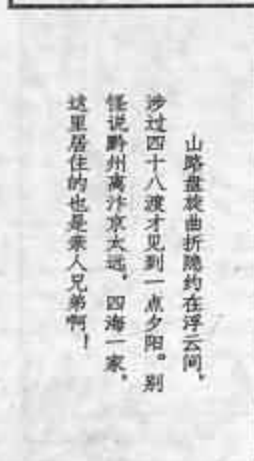 山路盘旋曲折隐约在浮云间，
涉过四十八渡才见到一点夕阳。别
怪说黔州离汴京太远，四海一家，
这里居住的也是亲人兄弟啊！